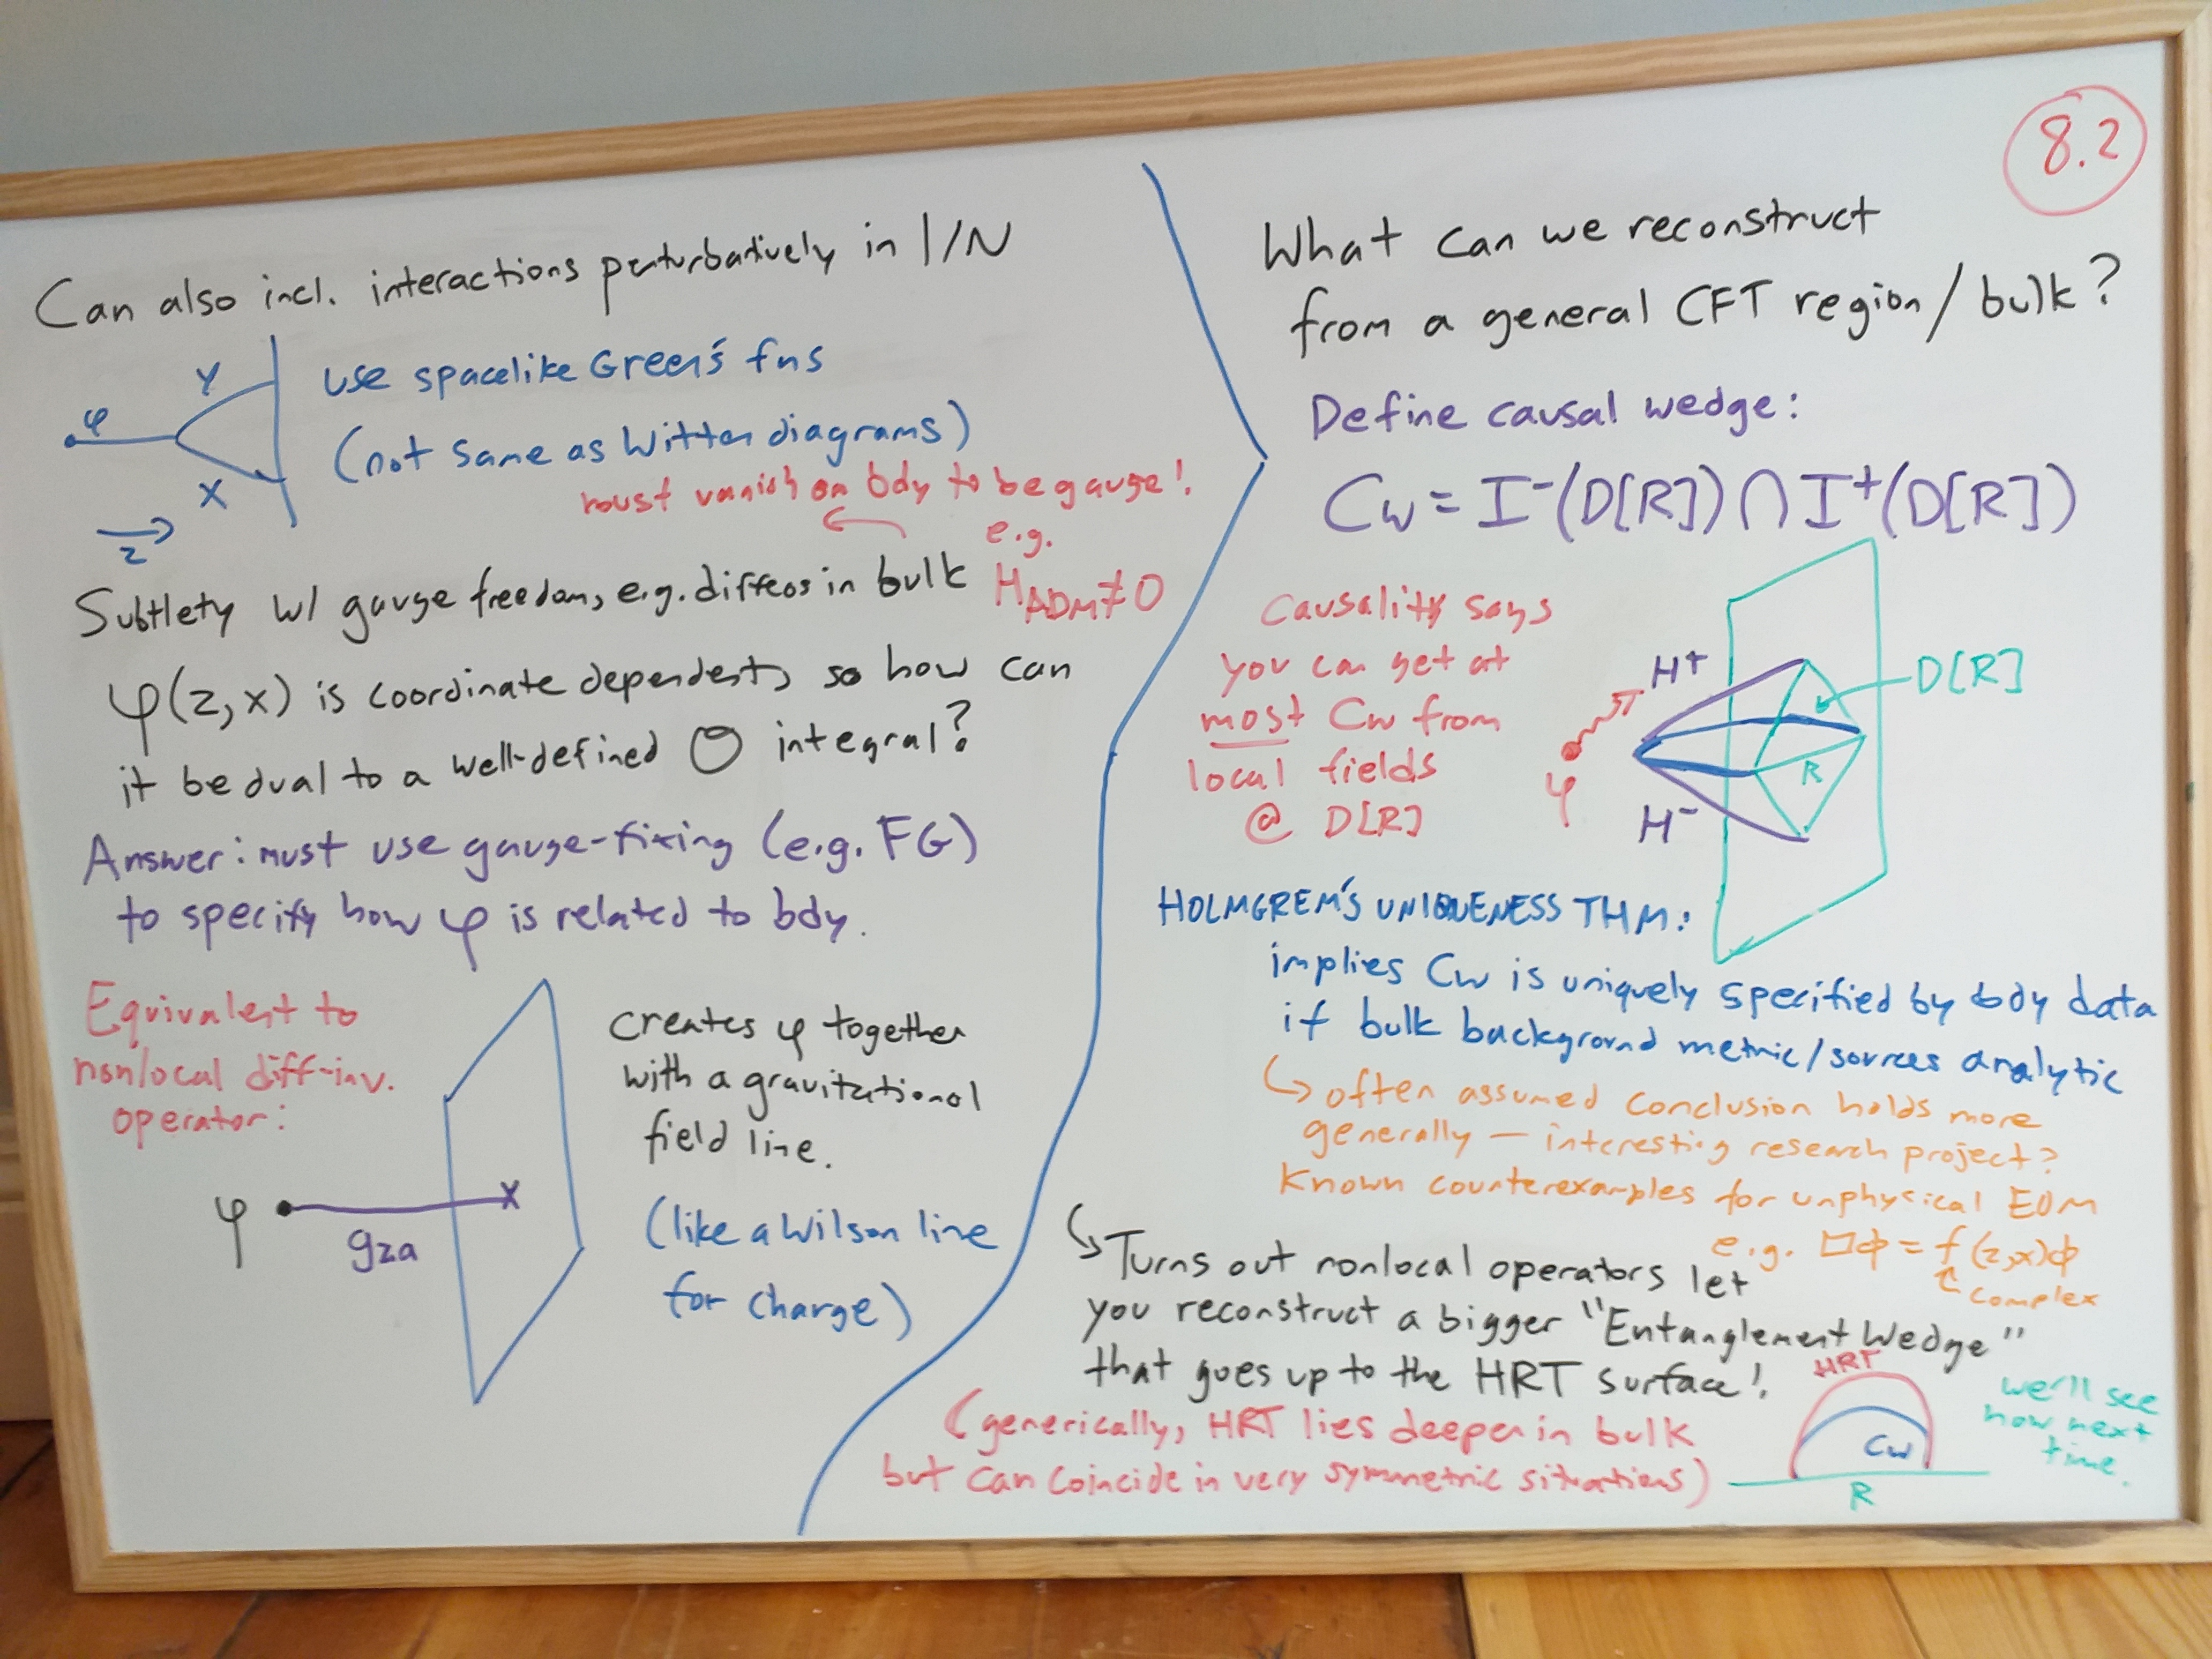 8.2
Can also incl. interactions perturbatively in 1/N
φ
y
x
z
use spacelike Green's fns
(not same as Witten diagrams)
must vanish on bdy to be gauge!
e.g.
H_ADM ≠ 0
Subtlety w/ gauge freedom, e.g. diffeos in bulk
φ(z,x) is coordinate dependent, so how can
it be dual to a well-defined O integral?
Answer: must use gauge-fixing (e.g. FG)
to specify how φ is related to bdy.
Equivalent to
nonlocal diff-inv.
operator:
φ
g_za
x
creates φ together
with a gravitational
field line.
(like a Wilson line
for charge)
What can we reconstruct
from a general CFT region/bulk?
Define causal wedge:
C_W = I⁻(D[R]) ∩ I⁺(D[R])
Causality says
you can get at
most C_W from
local fields
@ D[R]
φ
H⁺
H⁻
R
D[R]
HOLMGREM'S UNIQUENESS THM:
implies C_W is uniquely specified by bdy data
if bulk background metric/sources analytic
↳ often assumed conclusion holds more
generally — interesting research project?
Known counterexamples for unphysical EOM
e.g. □φ = f(z,x)φ
complex
↳ Turns out nonlocal operators let
you reconstruct a bigger "Entanglement Wedge"
that goes up to the HRT surface!
(generically, HRT lies deeper in bulk
but can coincide in very symmetric situations)
HRT
C_W
R
we'll see
how next
time.